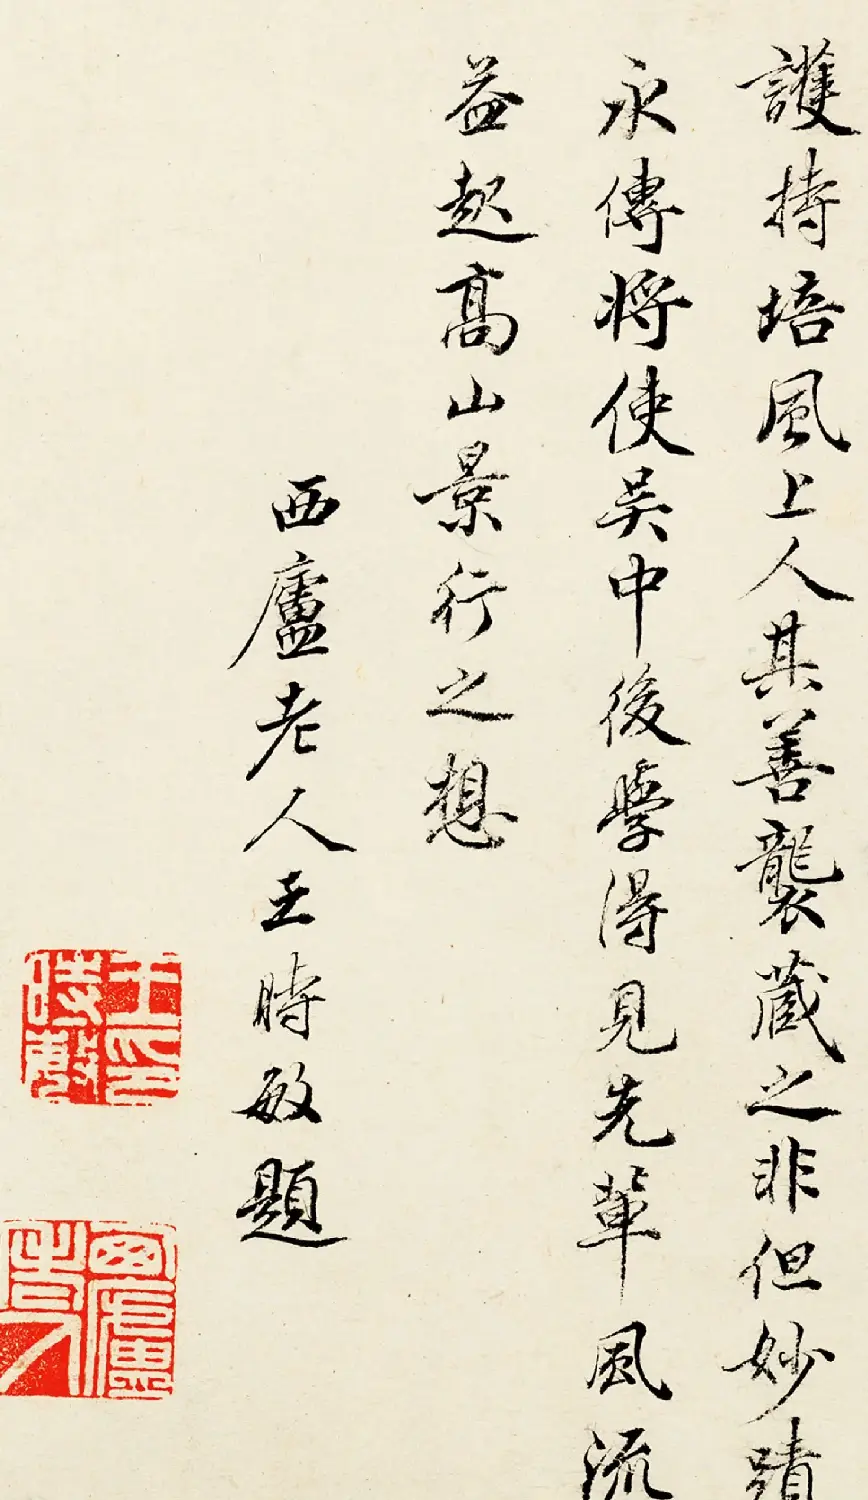 護持培風上人其善襲蔵之非但妙蹟
永傳将使吳中後學得見先輩風流
益起髙山景行之想
西廬老人王時敏題
王時敏印
西廬老人